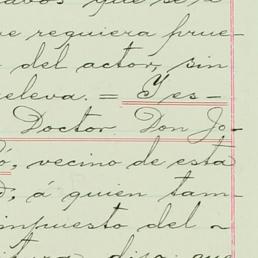 que se a
se requiera prue-
del actor, sin
releva. = Yes-
Doctor Don Jo-
o, vecino de esta
d, á quien tam-
impuesto del
dijo: que